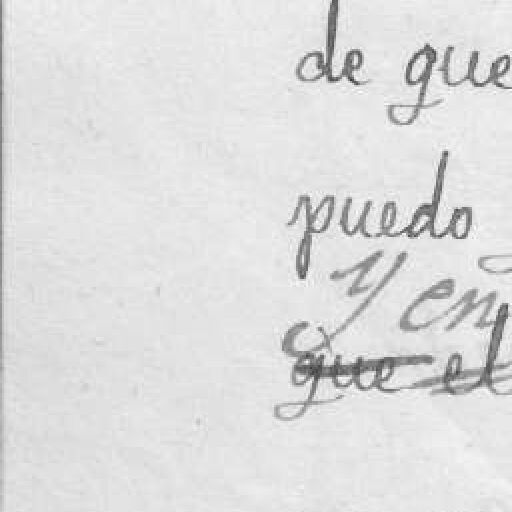 de que
puedo
y en
que el